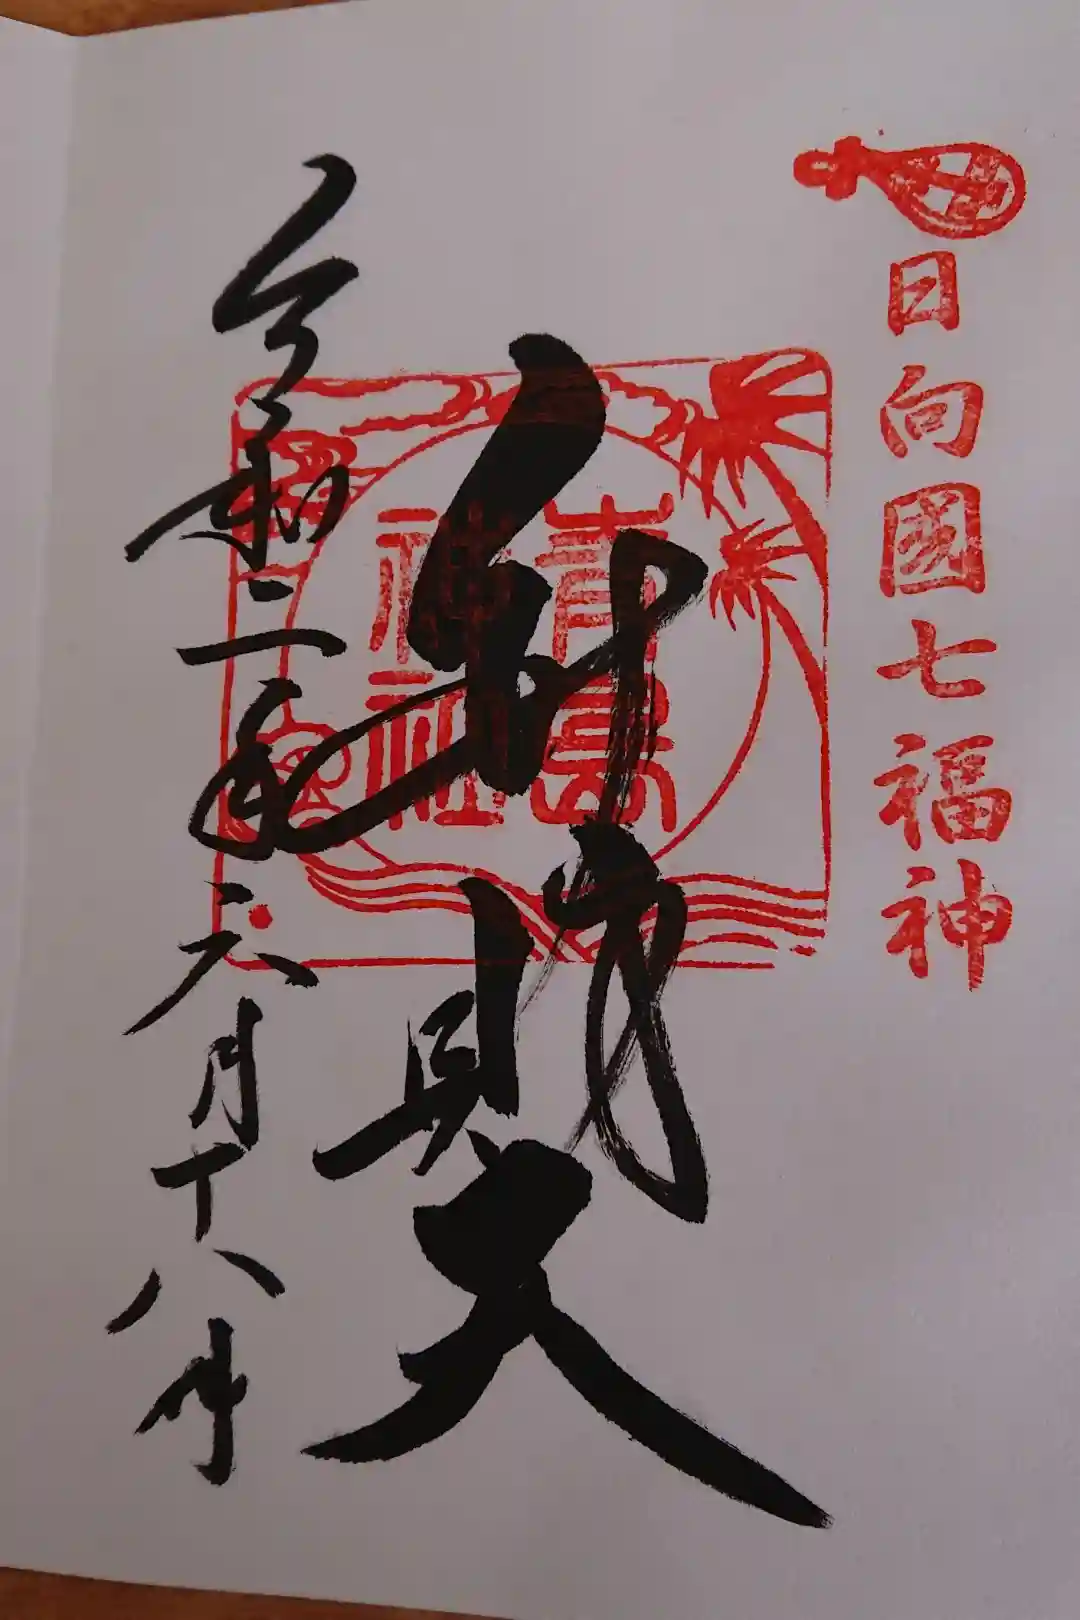 日向國七福神
青島
神社
財天
令和二年六月十八